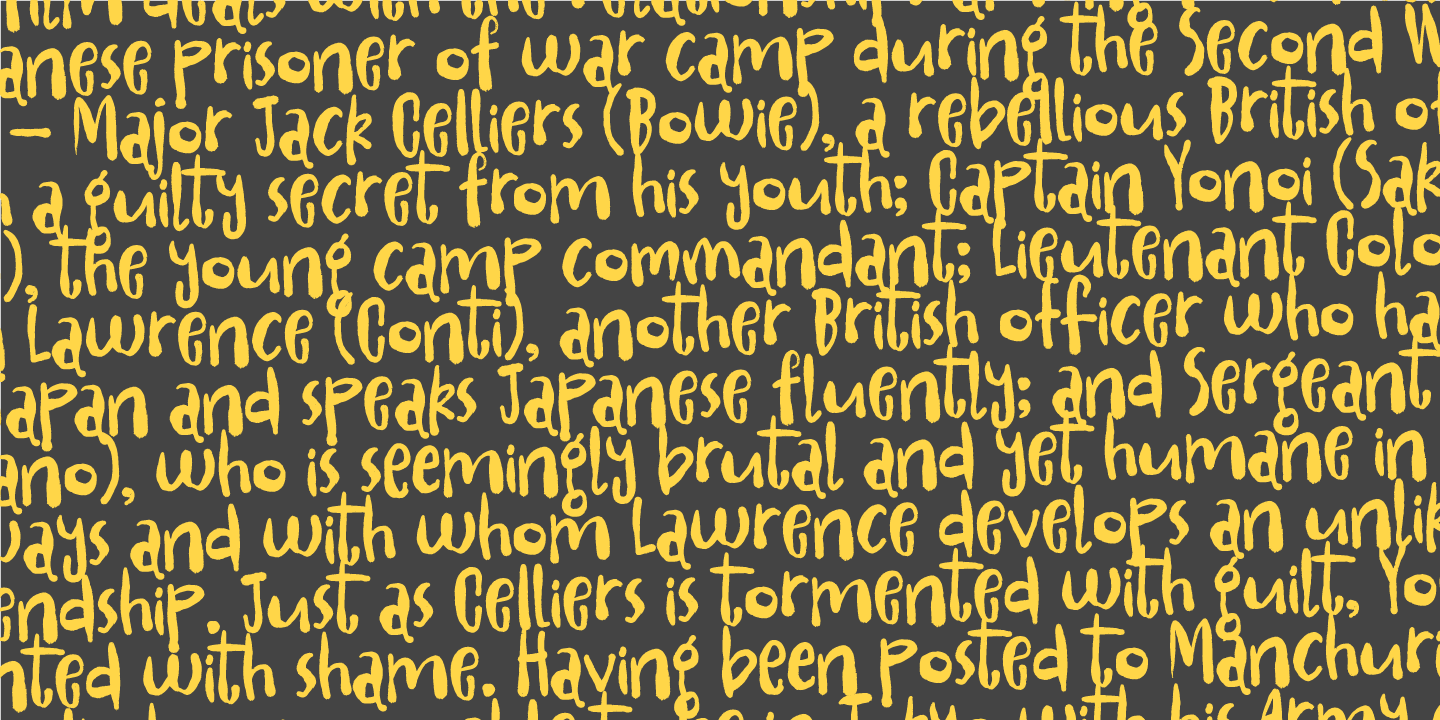 deals with the relationship
anese prisoner of war camp during the Second W
– Major Jack Celliers (Bowie), a rebellious British of
a guilty secret from his youth; Captain Yonoi (Sak
), the young camp commandant; Lieutenant Colo
Lawrence (Conti), another British officer who ha
apan and speaks Japanese fluently; and Sergeant
ano), who is seemingly brutal and yet humane in
ways and with whom Lawrence develops an unlik
endship. Just as Celliers is tormented with guilt, Yo
nted with shame. Having been posted to Manchuri
with his Army